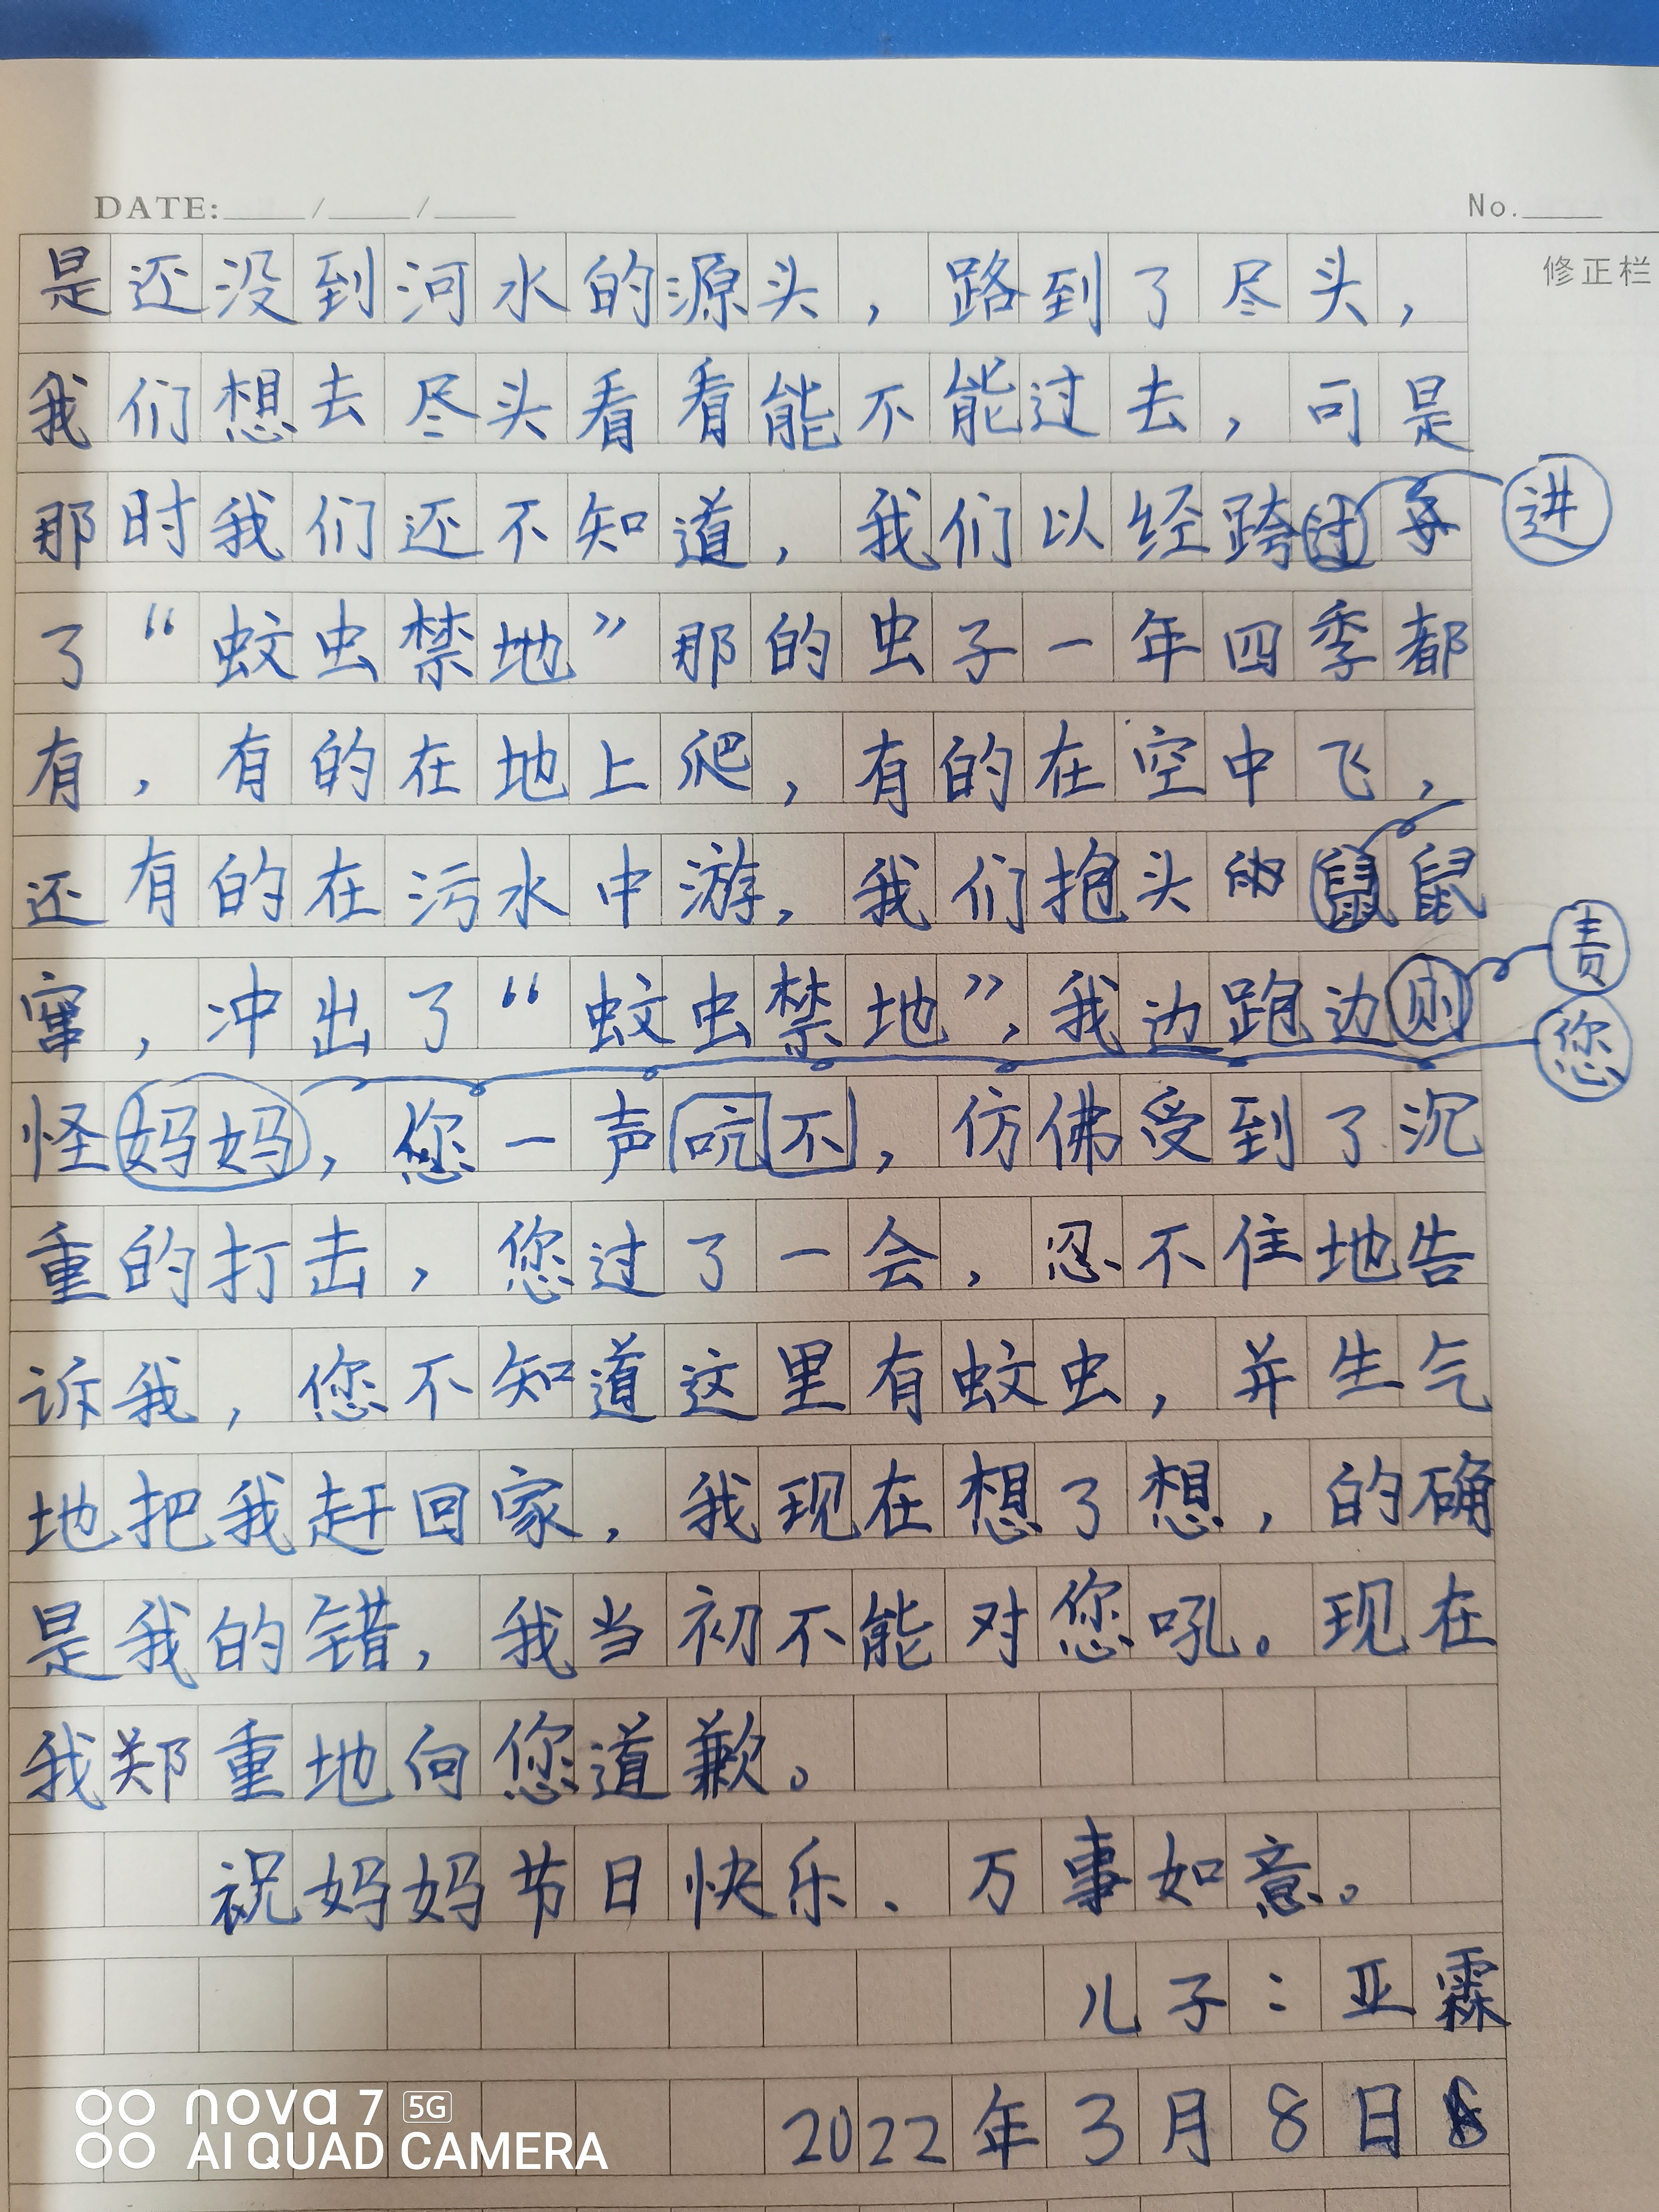 DATE: / /
No.
修正栏
是还没到河水的源头，路到了尽头，
我们想去尽头看看能不能过去，可是
那时我们还不知道，我们以经跨过
进
了“蚊虫禁地”那的虫子一年四季都
有，有的在地上爬，有的在空中飞，
还有的在污水中游，我们抱头鼠
窜，冲出了“蚊虫禁地”，我边跑边则
责
您
怪妈妈，您一声吭不，仿佛受到了沉
重的打击，您过了一会，忍不住地告
诉我，您不知道这里有蚊虫，并生气
地把我赶回家，我现在想了想，的确
是我的错，我当初不能对您吼。现在
我郑重地向您道歉。
祝妈妈节日快乐、万事如意。
儿子：亚霖
2022年3月8日
nova 7 5G
AI QUAD CAMERA